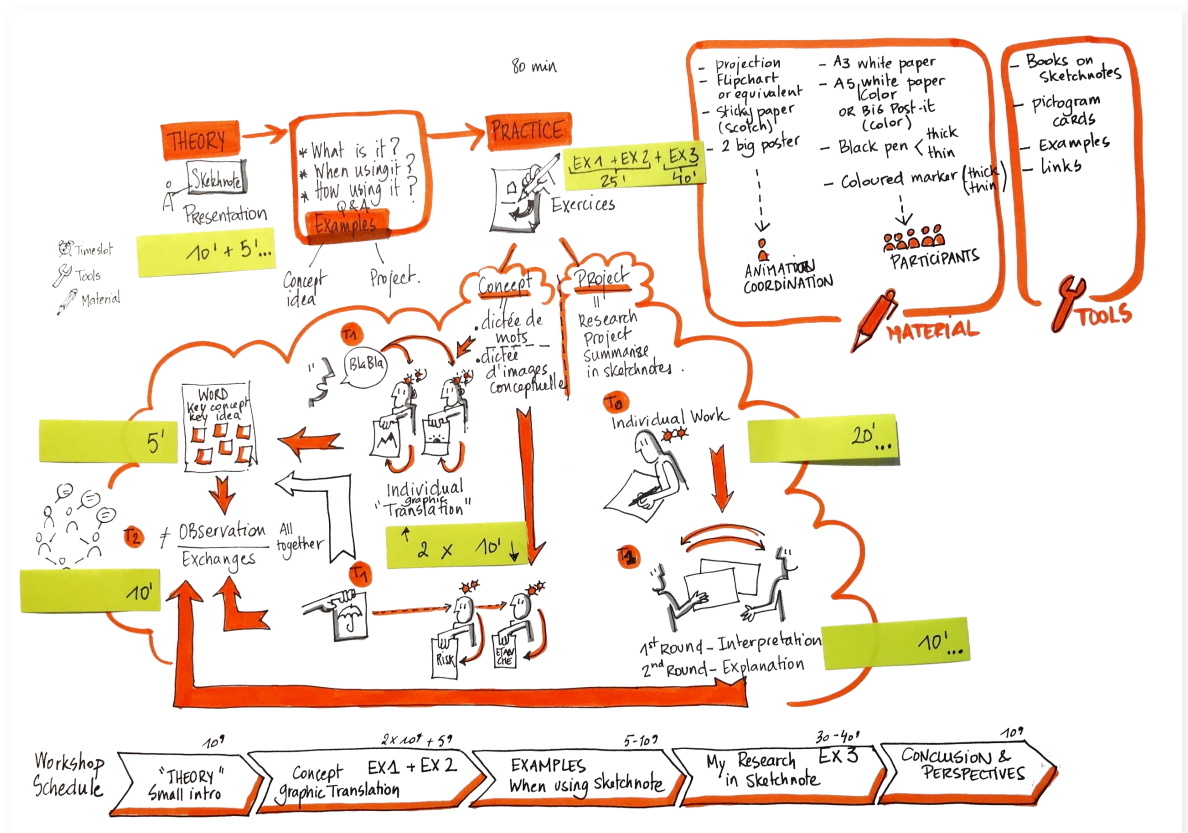 80 min
THEORY
Sketchnote
Presentation
10' + 5'...
* What is it?
* When using it?
* How using it?
Q&A
Examples
Concept
idea
Project.
PRACTICE
EX1 + EX2 + EX3
25'
40'
Exercices
- projection
- Flipchart
or equivalent
- Sticky paper
(scotch)
- 2 big poster
ANIMATION
COORDINATION
- A3 white paper
- A5 white paper
color
OR BIG Post-it
(color)
- Black pen < thick
thin
- Coloured marker (thick
thin)
PARTICIPANTS
MATERIAL
- Books on
sketchnotes
- pictogram
cards
- Examples
- Links
TOOLS
Timeslot
Tools
Material
Concept
. dictée de
mots
. dictée
d'images
conceptuelle
Project
=
Research
Project
Summarise
in sketchnotes.
T1
BlaBla
WORD
key concept
key idea
5'
Individual
graphic
"Translation"
↑ 2 x 10' ↓
T2
≠ Observation
Exchanges
All
together
10'
T1
RISK
ETAN
CHE
T0
Individual Work
20'...
1st Round - Interpretation
2nd Round - Explanation
10'...
Workshop
Schedule
10'
"THEORY"
Small intro
2x10' + 5'
Concept EX1 + EX2
graphic Translation
5-10'
EXAMPLES
When using sketchnote
30-40'
My Research EX3
in Sketchnote
10'
CONCLUSION &
PERSPECTIVES